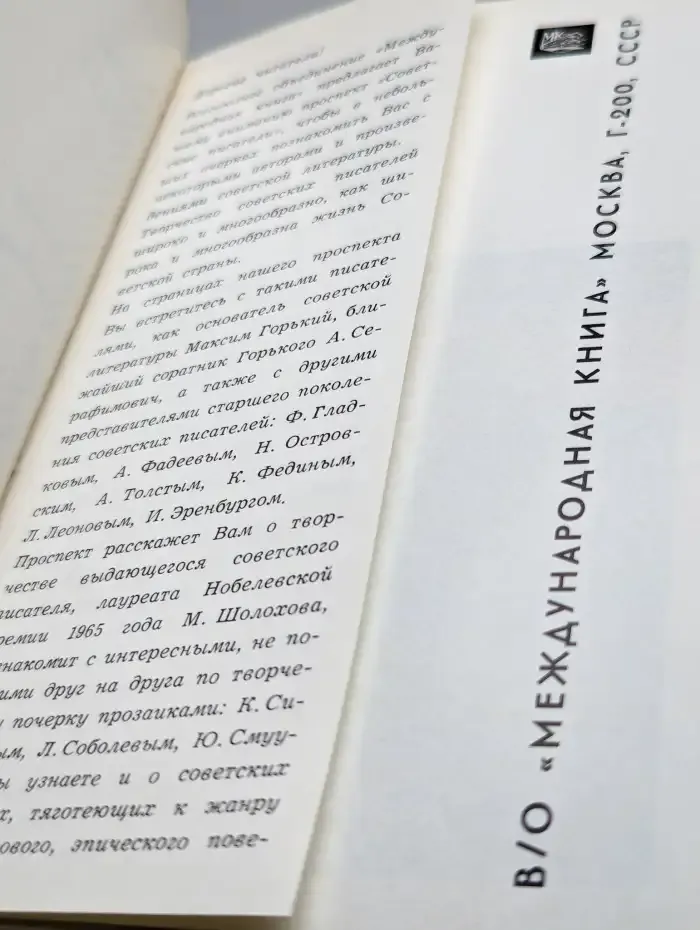 Дорогой читатель!
Всесоюзное объединение «Между-
народная книга» предлагает Ва-
шему вниманию проспект «Совет-
ские писатели», чтобы в неболь-
ших очерках познакомить Вас с
некоторыми авторами и произве-
дениями советской литературы.
Творчество советских писателей
широко и многообразно, как ши-
рока и многообразна жизнь Со-
ветской страны.
На страницах нашего проспекта
Вы встретитесь с такими писате-
лями, как основатель советской
литературы Максим Горький, бли-
жайший соратник Горького А. Се-
рафимович, а также с другими
представителями старшего поколе-
ния советских писателей: Ф. Глад-
ковым, А. Фадеевым, Н. Остров-
ским, А. Толстым, К. Фединым,
Л. Леоновым, И. Эренбургом.
Проспект расскажет Вам о твор-
честве выдающегося советского
писателя, лауреата Нобелевской
ремии 1965 года М. Шолохова,
накомит с интересными, не по-
ими друг на друга по творче-
у почерку прозаиками: К. Си-
ым, Л. Соболевым, Ю. Смуу-
ы узнаете и о советских
х, тяготеющих к жанру
ового, эпического пове-
МК
В/О «МЕЖДУНАРОДНАЯ КНИГА» МОСКВА, Г-200, СССР